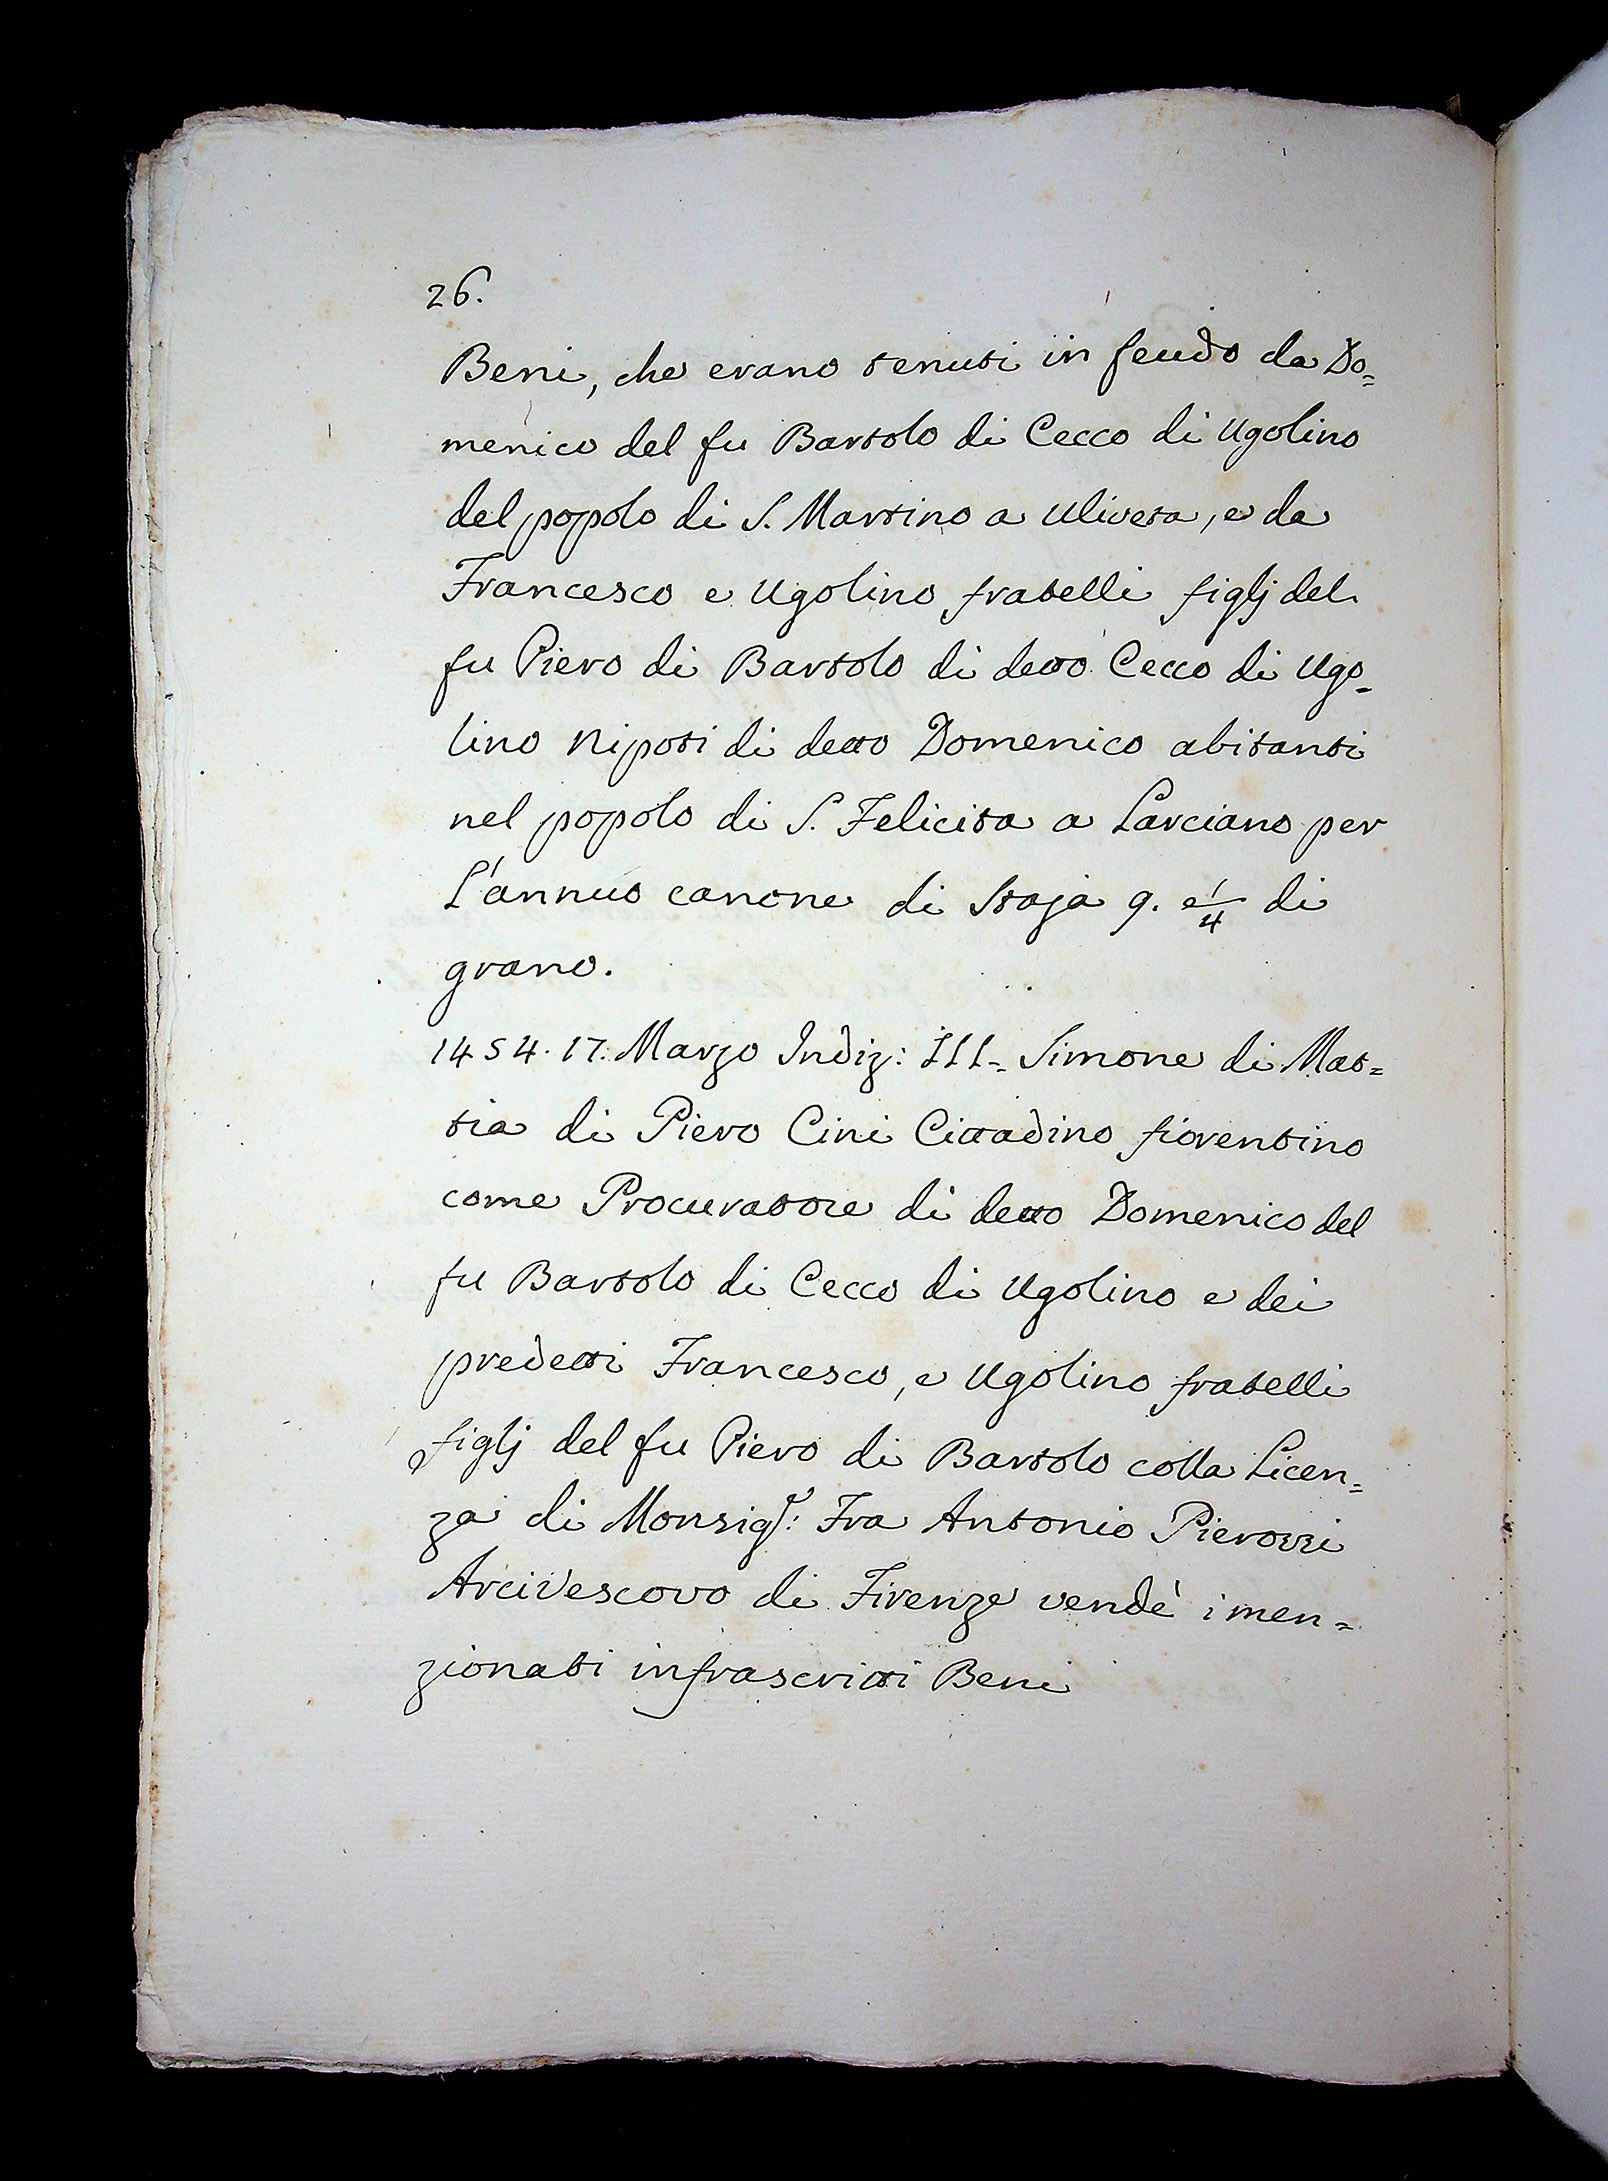 26.
Beni, che erano tenuti in feudo da Do=
menico del fu Bartolo di Cecco di Ugolino
del popolo di S. Martino a Uliveta, e da
Francesco e Ugolino fratelli figlj del
fu Piero di Bartolo di detto Cecco di Ugo=
lino Nipoti di detto Domenico abitanti
nel popolo di S. Felicita a Larciano per
L'annuo canone di Staja 9. e 1/4 di
grano.
1454. 17. Marzo Indiz: III= Simone di Mat=
tia di Piero Cini Cittadino fiorentino
come Procuratore di detto Domenico del
fu Bartolo di Cecco di Ugolino e dei
predetti Francesco, e Ugolino fratelli
figlj del fu Piero di Bartolo colla Licen=
za di Monsigr: Fra Antonio Pierozzi
Arcivescovo di Firenze vendè i men=
zionati infrascritti Beni